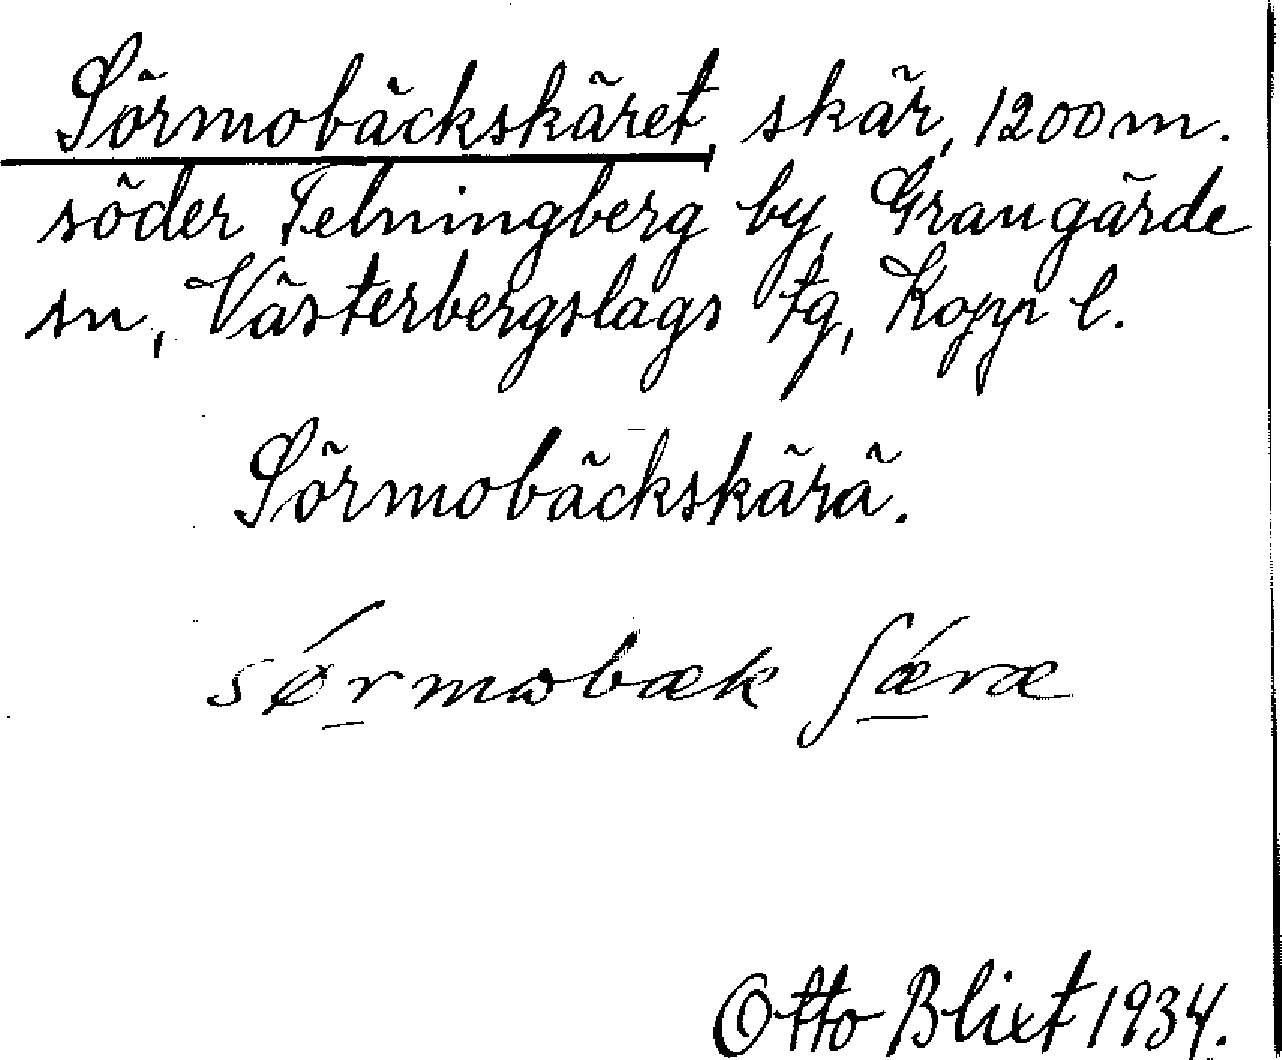 Sörmobäckskäret, skär, 1200 m.
söder Telningberg by, Grangärde
sn, Västerbergslags fg, Kopp l.
Sörmobäckskärä.
sǿrmωbæk ʃǽræ
Otto Blixt 1934.